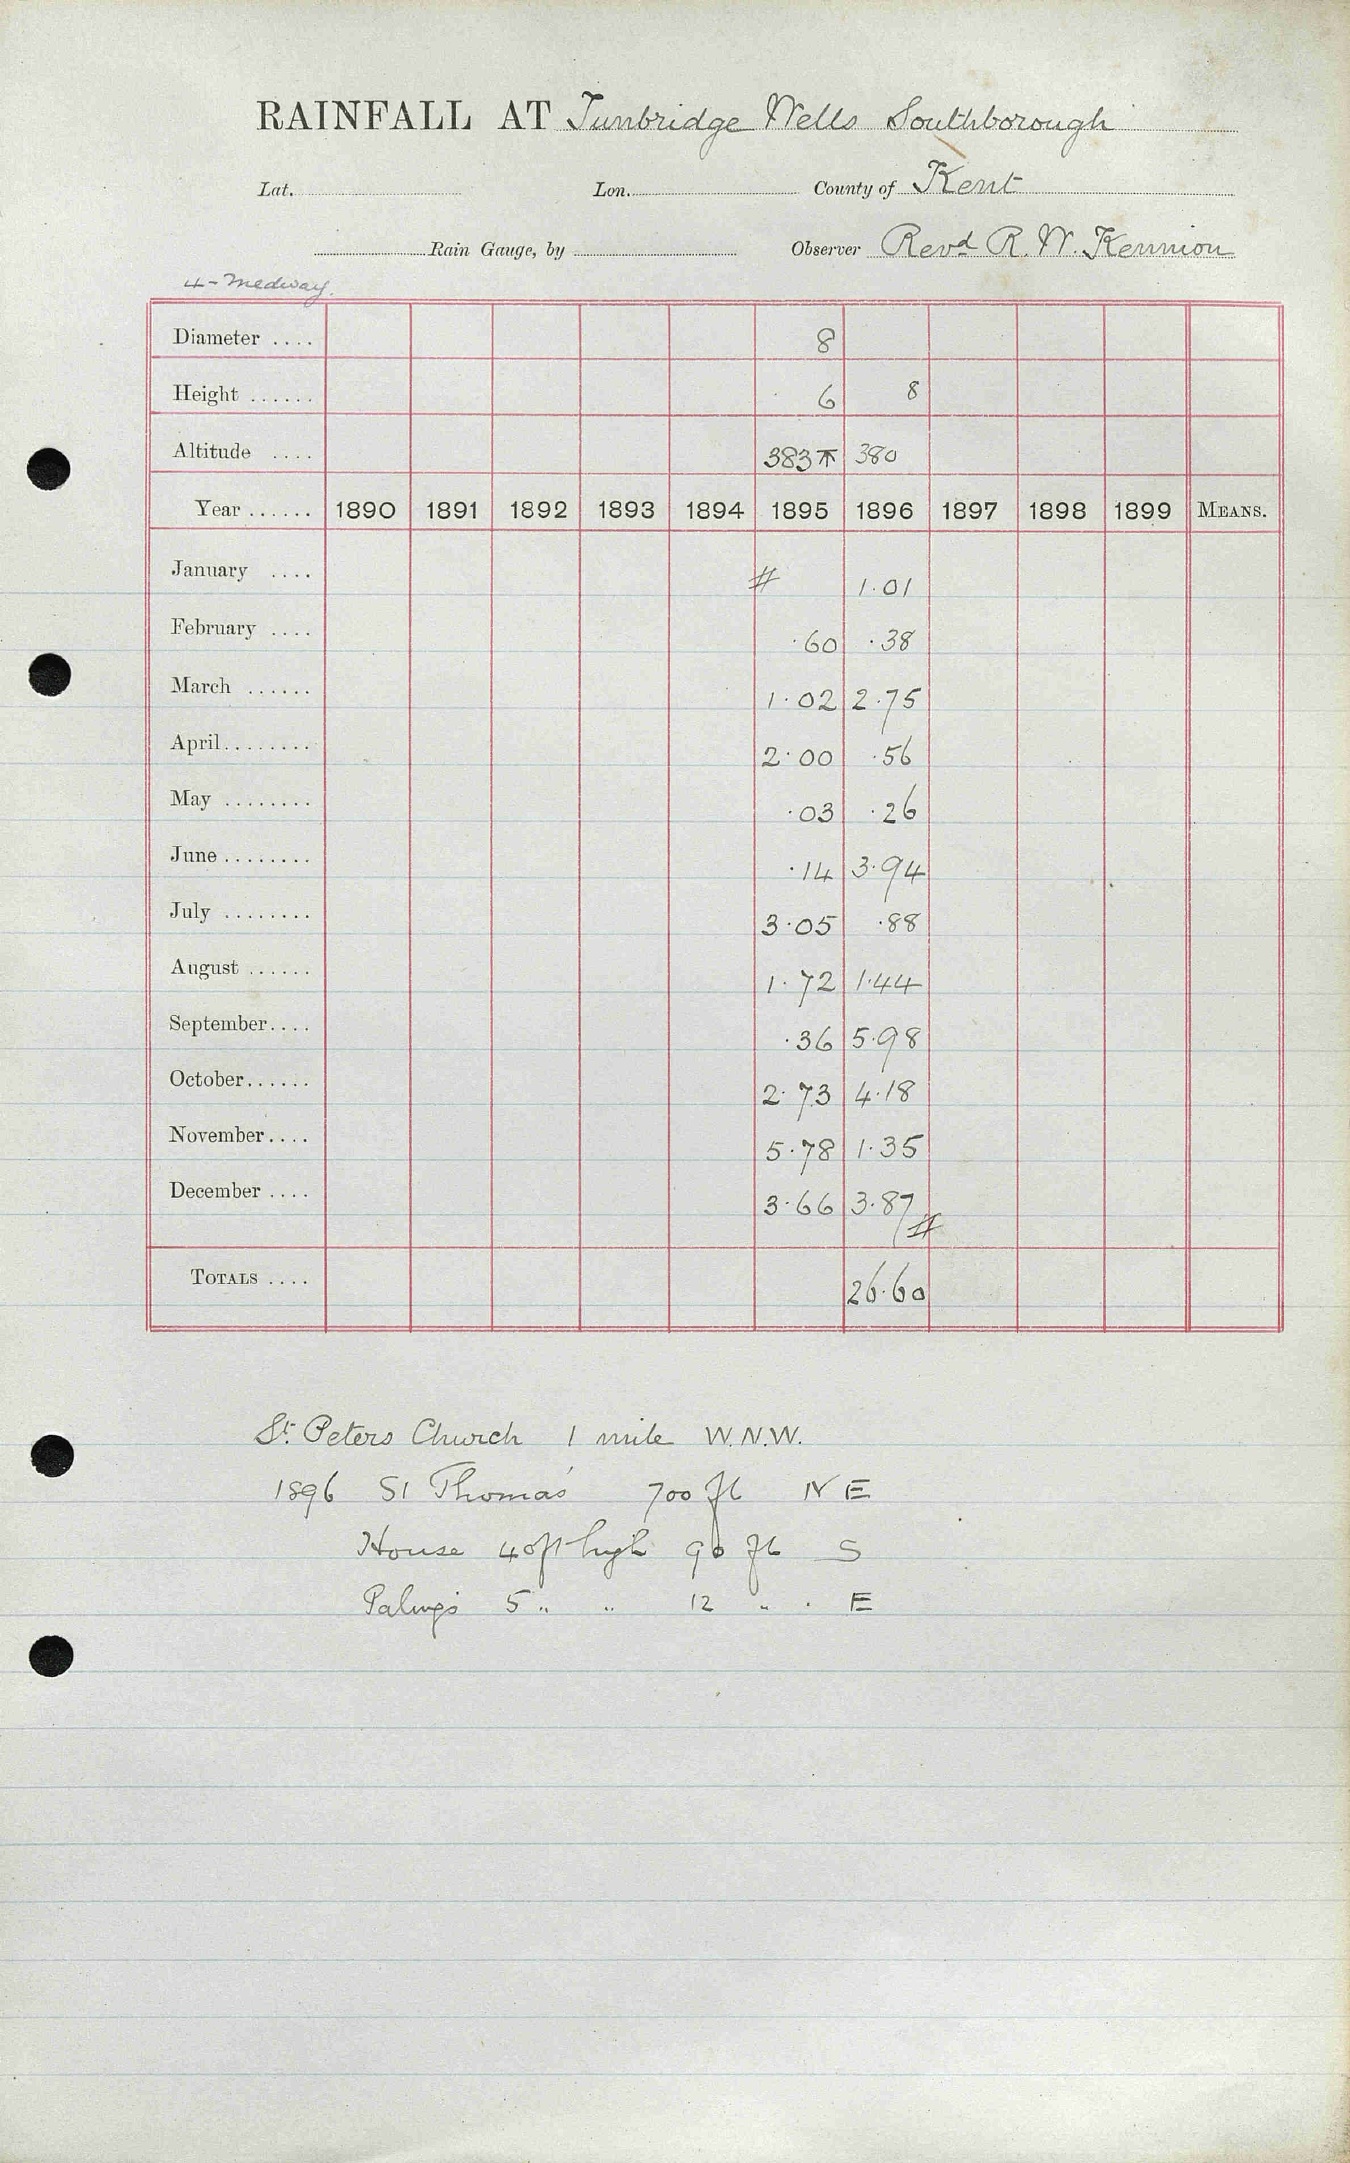 RAINFALL AT Tunbridge Wells Southborough
Lat. Lon. County of Kent
Rain Gauge, by Observer Revd R. W. Kennion
4 - Medway.
Diameter .... 8
Height ...... 6 8
Altitude .... 383 T 380
Year ...... 1890 1891 1892 1893 1894 1895 1896 1897 1898 1899 MEANS.
January .... # 1.01
February .... .60 .38
March ...... 1.02 2.75
April........ 2.00 .56
May ........ .03 .26
June ........ .14 3.94
July ........ 3.05 .88
August ...... 1.72 1.44
September.... .36 5.98
October...... 2.73 4.18
November.... 5.78 1.35
December .... 3.66 3.87 #
TOTALS .... 26.60
St. Peters Church 1 mile W.N.W.
1896 St Thomas' 700 ft N E
House 40ft high 90 ft S
Palings 5 " " 12 " . E